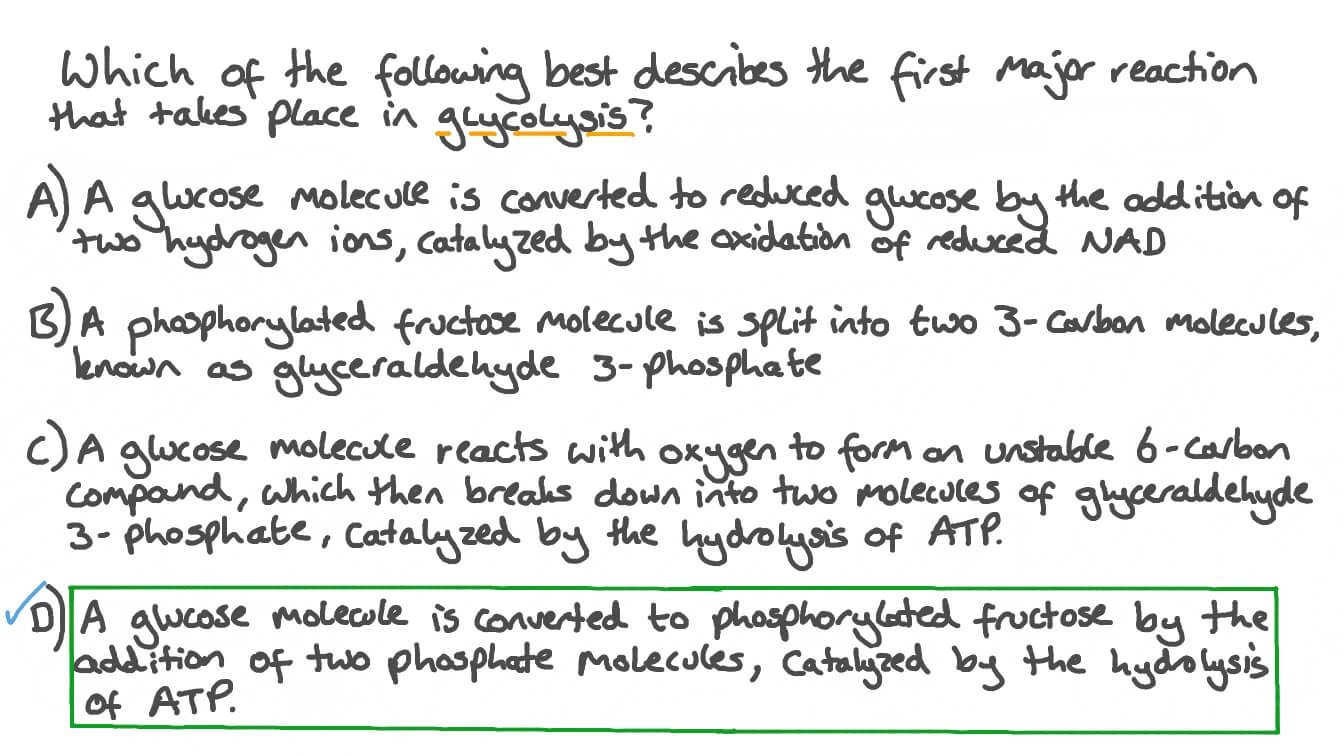 Which of the following best describes the first major reaction
that takes place in glycolysis?
A) A glucose molecule is converted to reduced glucose by the addition of
two hydrogen ions, catalyzed by the oxidation of reduced NAD
B) A phosphorylated fructose molecule is split into two 3-carbon molecules,
known as glyceraldehyde 3-phosphate
C) A glucose molecule reacts with oxygen to form an unstable 6-carbon
compound, which then breaks down into two molecules of glyceraldehyde
3-phosphate, catalyzed by the hydrolysis of ATP.
✓D) A glucose molecule is converted to phosphorylated fructose by the
addition of two phosphate molecules, catalyzed by the hydrolysis
of ATP.